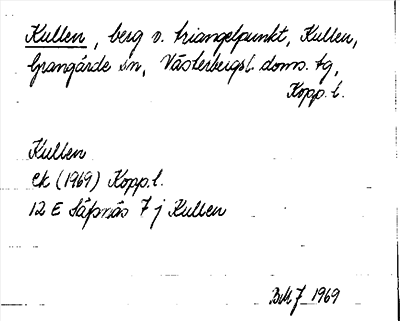 Kullen, berg o. triangelpunkt, Kullen,
Grangärde sn, Västerbergsl. doms. tg,
Kopp. l.
Kullen
ek (1969) Kopp. l.
12 E Säfsnäs 7 j Kullen
BM 7 1969